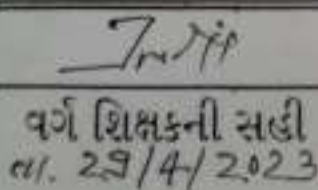 વર્ગ શિક્ષકની સહી
તા. 29/4/2023